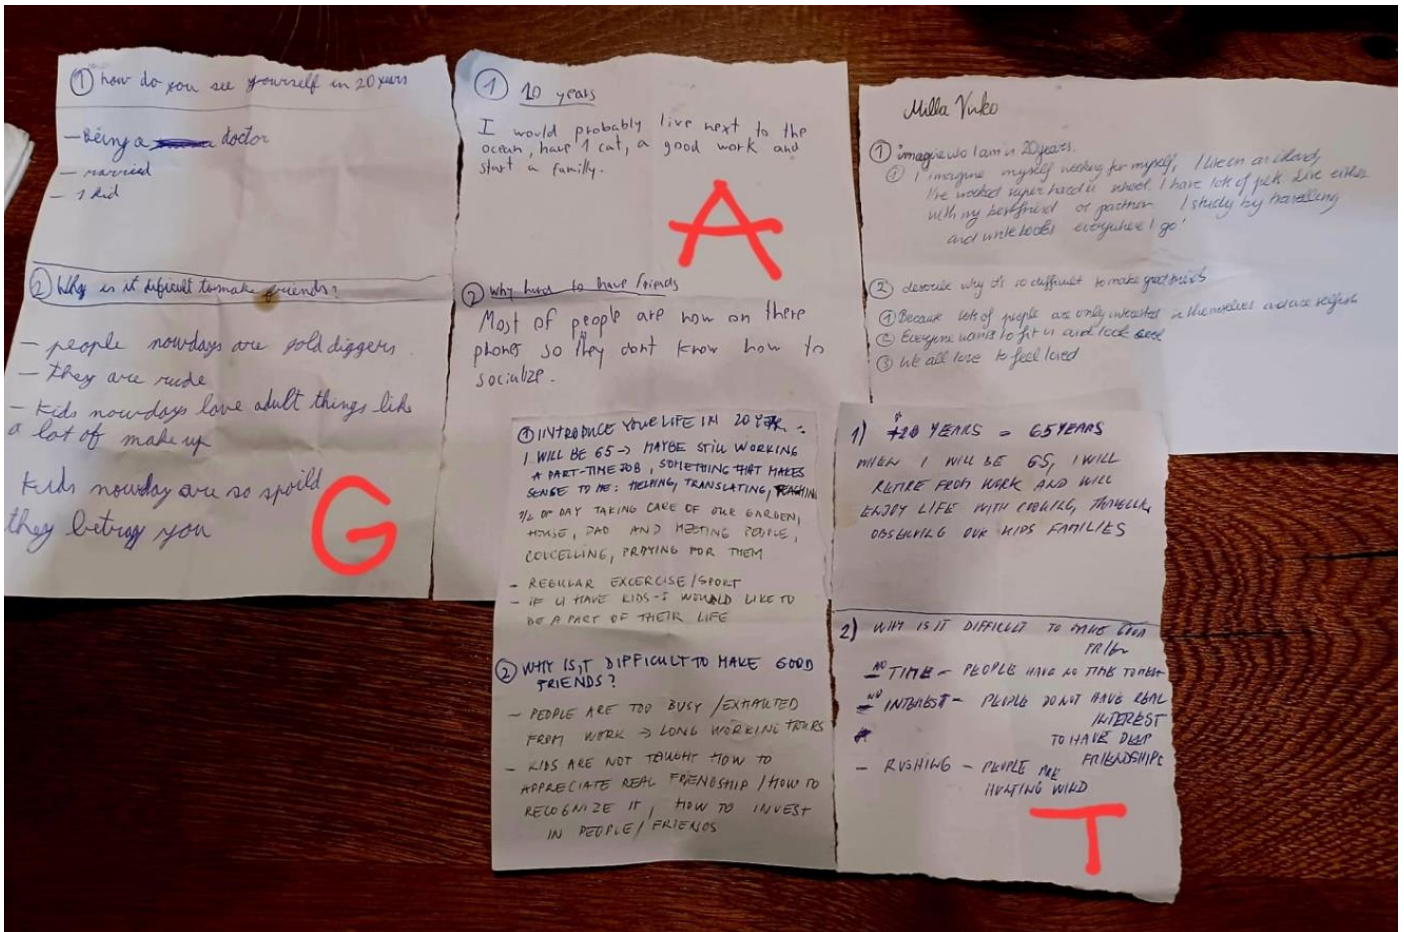 ① how do you see yourself in 20 years
- Being a doctor
- married
- 1 kid
② Why is it dificult to make friends?
- people nowdays are gold diggers
- they are rude
- kids nowdays love adult things like
a lot of make up
kids nowday are so spoild
they betray you
G
① 20 years
I would probably live next to the
ocean, have 1 cat, a good work and
start a familly.
A
② why hard to have friends
Most of people are now on there
phones so they dont know how to
socialize.
Milla Vuko
① imagine who I am in 20 years.
① I imagine myself working for myself, I live on an island,
I've worked super hard in school. I have lots of pets. Live either
with my bestfriend or partner. I study by travelling
and write books everywhere I go'
② describe why it's so difficult to make good friends
① Because lots of people are only interested in themselves and are selfish
② Everyone wants to fit in and look
③ We all love to feel loved
① INTRODUCE YOUR LIFE IN 20
I WILL BE 65 → MAYBE STILL WORKING
A PART-TIME JOB, SOMETHING THAT MAKES
SENSE TO ME: HELPING, TRANSLATING, TEACHING
1/2 OF DAY TAKING CARE OF OUR GARDEN,
HOUSE, DAD AND MEETING PEOPLE,
COUCELLING, PRAYING FOR THEM
- REGULAR EXCERCISE/SPORT
- IF U HAVE KIDS - I WOULD LIKE TO
BE A PART OF THEIR LIFE
② WHY IS IT DIFFICULT TO MAKE GOOD
FRIENDS?
- PEOPLE ARE TOO BUSY / EXHAUTED
FROM WORK → LONG WORKING HOURS
- KIDS ARE NOT TAUGHT HOW TO
APPRECIATE REAL FRIENDSHIP / HOW TO
RECOGNIZE IT, HOW TO INVEST
IN PEOPLE / FRIENDS
1) +20 YEARS = 65 YEARS
WHEN I WILL BE 65, I WILL
RETIRE FROM WORK AND WILL
ENJOY LIFE WITH COOKING, TRAVELLIN,
OBSERVING OUR KIDS FAMILIES
2) WHY IS IT DIFFICULT TO MAKE GOOD
- NO TIME - PEOPLE HAVE NO TIME TO MEET
- NO INTEREST - PEOPLE DO NOT HAVE REAL
INTEREST
TO HAVE DEEP
FRIENDSHIPS
- RUSHING - PEOPLE ARE
HUNTING WIND
T